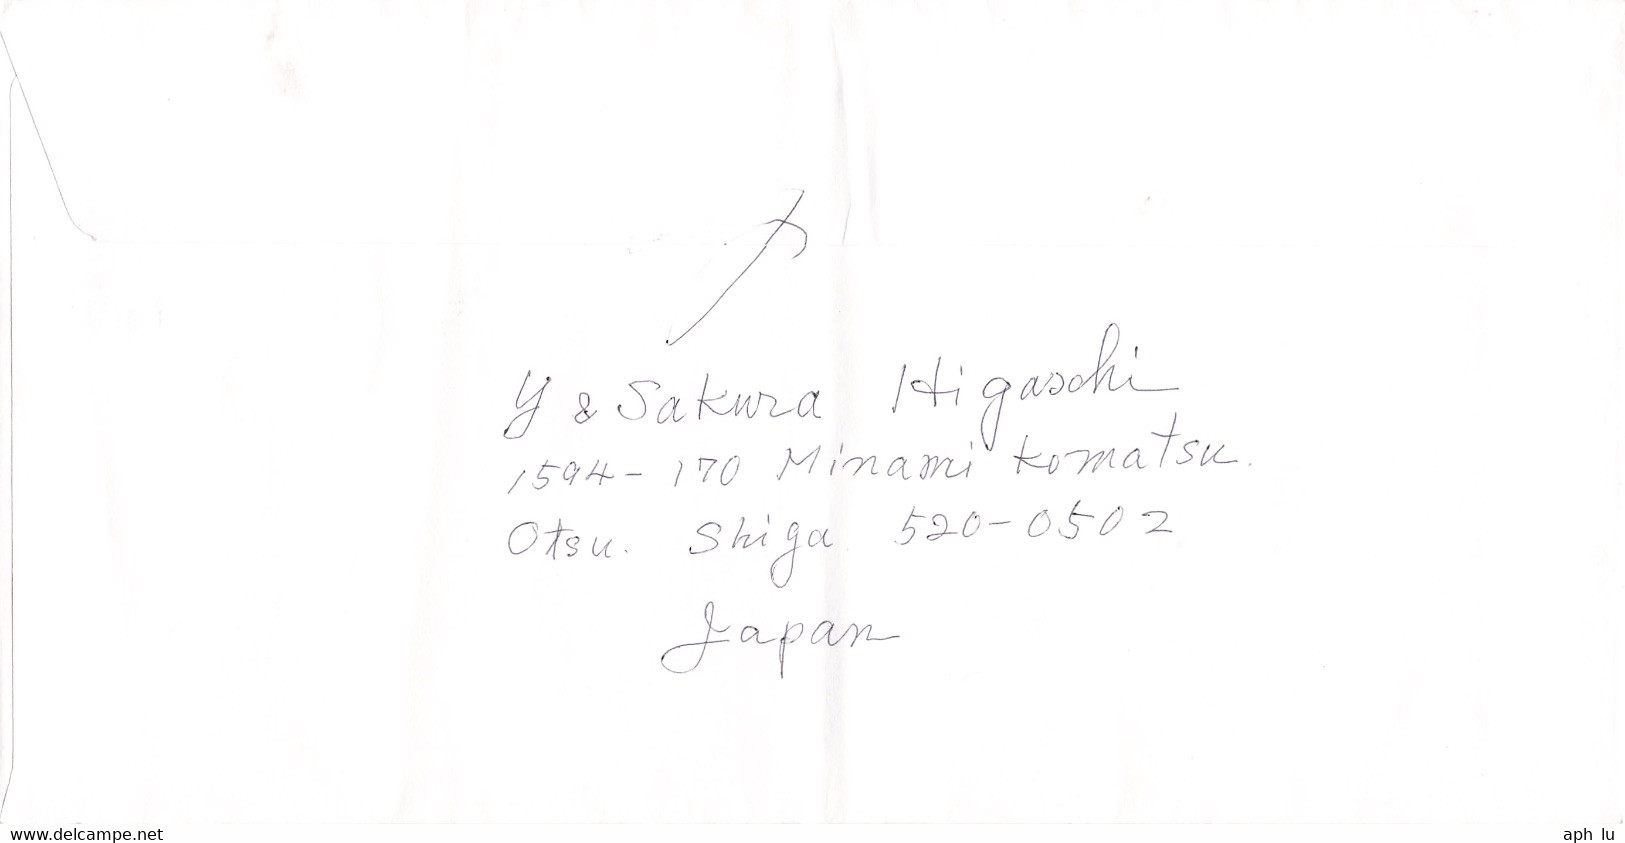 Y & Sakura Higashi
1594-170 Minami Komatsu.
Otsu. Shiga 520-0502
Japan
www.delcampe.net
aph lu